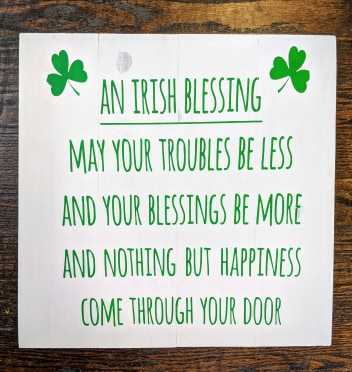 AN IRISH BLESSING
MAY YOUR TROUBLES BE LESS
AND YOUR BLESSINGS BE MORE
AND NOTHING BUT HAPPINESS
COME THROUGH YOUR DOOR